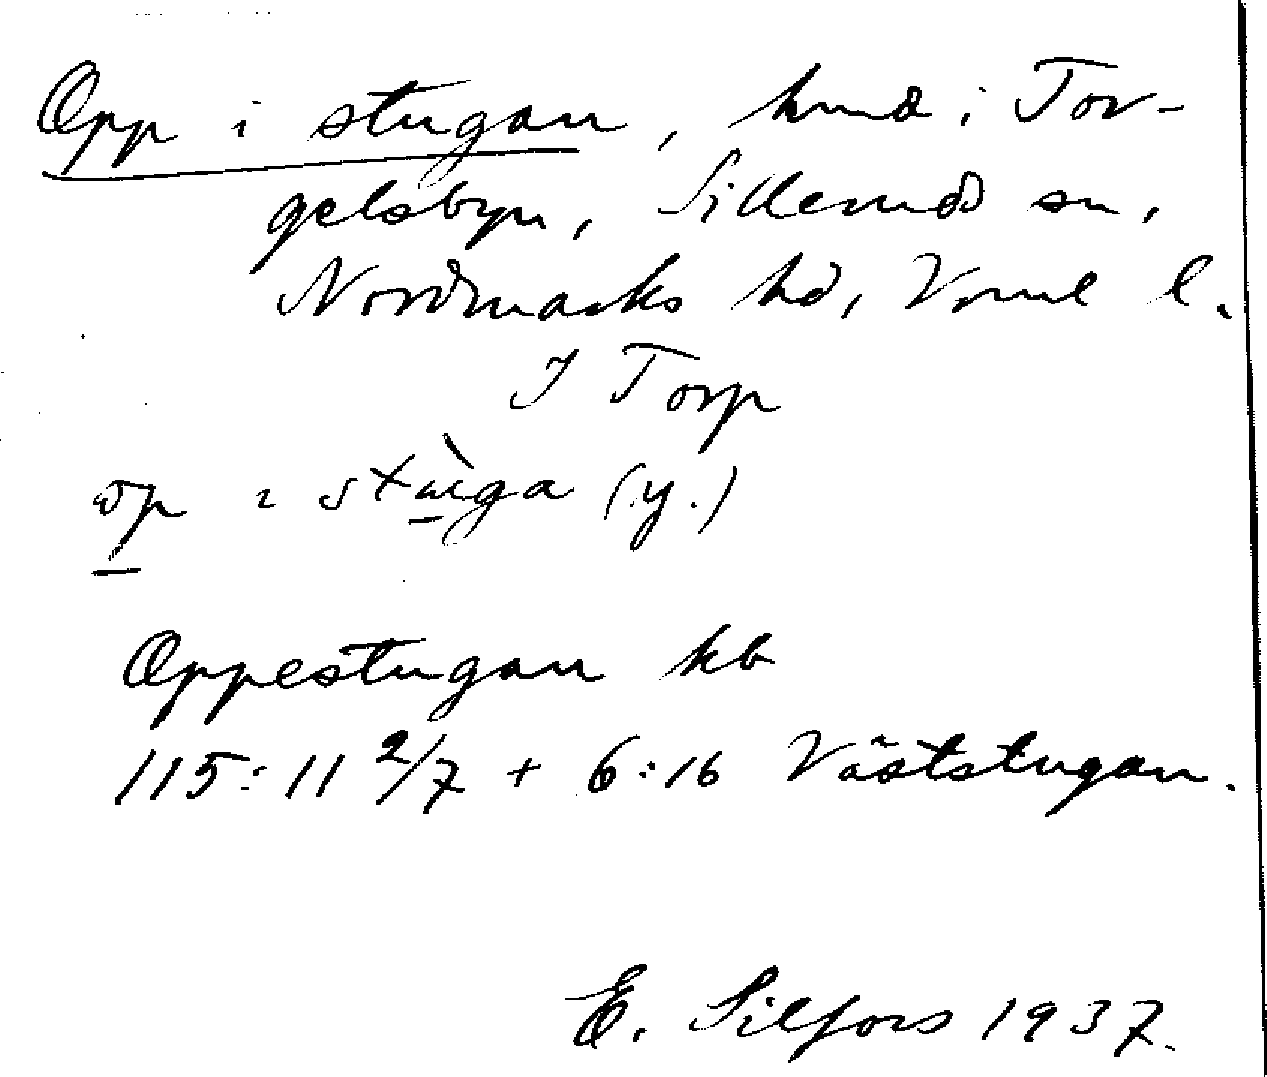 Opp i stugan, hmd i Tor-
gelsbyn, Sillerud sn,
Nordmarks hd, Vrml l.
I Torp
op ı stùga (y.)
Oppestugan kb
115:11 2/7 + 6:16 Väststugan.
E. Silfors 1937.